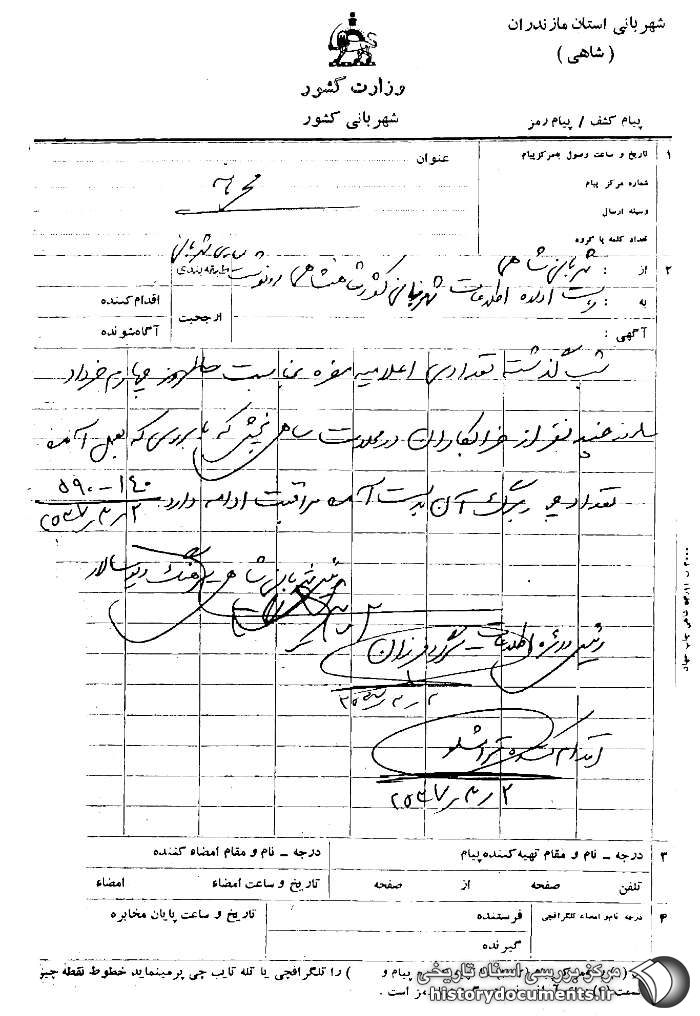 شهربانی استان مازندران
( شاهی )
وزارت کشور
شهربانی کشور
پیام کشف / پیام رمز
۱
تاریخ و ساعت وصول بمرکز پیام
عنوان
شماره مرکز پیام
محرمانه
وسیله ارسال
تعداد کلمه یا گروه
۲ از : شهربانی شاهی
طبقه‌بندی
به : ریاست اداره اطلاعات شهربانی کشور شاهنشاهی رونوشت
ارجحیت
اقدام کننده
آگاه شونده
آگهی :
شب گذشته تعدادی اعلامیه مضره بمناسبت سالروز چهارم خرداد
چند نفر از خرابکاران در محلات شاهی پخش که با بررسی که بعمل آمده
تعداد چهار برگ آن بدست آمده مراقبت ادامه دارد. ۱۴۰-۵۹۰
۲ ر ۳ ر ۲۵۳۷
رئیس شهربانی شاهی - سرهنگ دیوسالار
رئیس دایره اطلاعات - سرگرد فرزان
اقدام کننده قراشلو
۲ ر ۳ ر ۲۵۳۷
۳ درجه - نام و مقام تهیه کننده پیام
درجه - نام و مقام امضاء کننده
تلفن صفحه از صفحه
تاریخ و ساعت امضاء امضاء
۴ درجه نام و امضاء تلگرافچی
فرستنده
تاریخ و ساعت پایان مخابره
گیرنده
پیام و ) را تلگرافچی یا تله تایپ چی پرمینماید خطوط نقطه چین
است .
مرکز بررسی اسناد تاریخی
historydocuments.ir